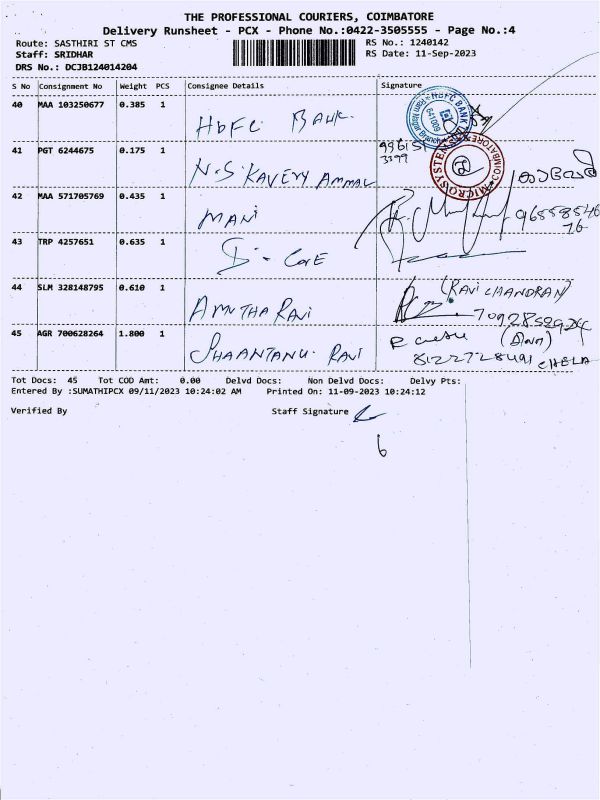 THE PROFESSIONAL COURIERS, COIMBATORE
Delivery Runsheet - PCX - Phone No.:0422-3505555 - Page No.:4
Route: SASTHIRI ST CMS RS No.: 1240142
Staff: SRIDHAR RS Date: 11-Sep-2023
DRS No.: DCJB124014204
S No Consignment No Weight PCS Consignee Details Signature
40 MAA 103250677 0.385 1 HDFC BANK. HDFC BANK 641009
41 PGT 6244675 0.175 1 N.S KAVERY AMMAL MICROSYSTEMS COIMBATORE 2
42 MAA 571705769 0.435 1 MANI
43 TRP 4257651 0.635 1
44 SLM 328148795 0.610 1 AMUTHA RAVI (RAVI CHANDRAN)
45 AGR 700628264 1.800 1 SHAANTANU. RAVI 8122728491 CHELA
Tot Docs: 45 Tot COD Amt: 0.00 Delvd Docs: Non Delvd Docs: Delvy Pts:
Entered By :SUMATHIPCX 09/11/2023 10:24:02 AM Printed On: 11-09-2023 10:24:12
Verified By Staff Signature
6